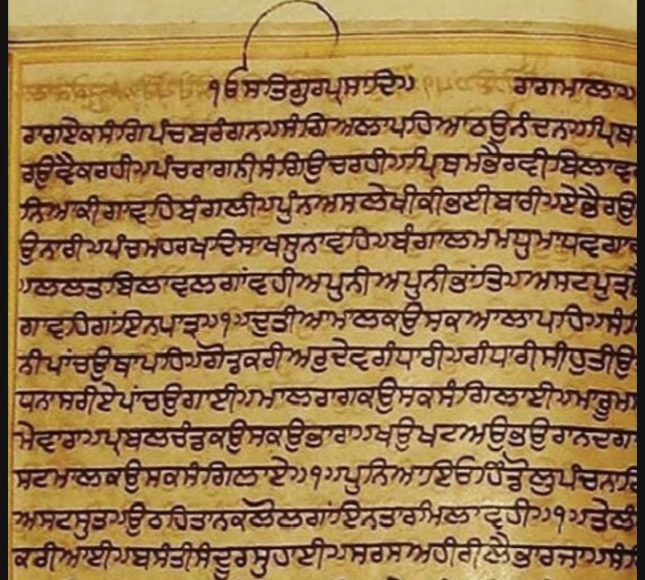 ੧ਓਸਤਿਗੁਰਪ੍ਰਸਾਦਿ॥ ਰਾਗਮਾਲਾ॥
ਰਾਗਏਕਸੰਗਿਪੰਚਬਰੰਗਨ॥ਸੰਗਿਅਲਾਪਹਿਆਠਉਨੰਦਨ॥ਪ੍ਰਿਥ
ਰਉਵੈਕਰਹੀ॥ਪੰਚਰਾਗਨੀਸੰਗਿਉਚਰਹੀ॥ਪ੍ਰਿਥਮਭੈਰਵੀਬਿਲਾਵ
ਨਿਆਕੀਗਾਵਹਿਬੰਗਲੀ॥ਪੁੰਨਾਅਸਲੇਖੀਕੀਭਈਬਾਰੀ॥ਏਭੈਰਉ
ਉਨਾਰੀ॥ਪੰਚਮਹਰਖਦਿਸਾਖਸੁਨਾਵਹਿ॥ਬੰਗਾਲਮਮਧੁਮਾਧਵਗਾਵ
॥ਲਲਤਬਿਲਾਵਲਗਾਂਵਹੀਅਪੁਨੀਅਪੁਨੀਭਾਂਤਿ॥ਅਸਟਪੁਤ੍ਰਭੈ
ਗਾਵਹਿਗਾਂਇਨਪਾਤ੍ਰ॥੧॥ਦੁਤੀਆਮਾਲਕਉਸਕਆਲਾਪਹਿ॥ਸੰਗਿ
ਨੀਪਾਂਚਉਥਾਪਹਿ॥ਗੋਂਡਕਰੀਅਰੁਦੇਵਗੰਧਾਰੀ॥ਗੰਧਾਰੀਸੀਹੁਤੀਉ
ਧਨਾਸਰੀਏਪਾਂਚਉਗਾਈ॥ਮਾਲਰਾਗਕਉਸਕਸੰਗਿਲਾਈ॥ਮਾਰੂਮ
ਮੇਵਾਰਾ॥ਪ੍ਰਬਲਚੰਡਕਉਸਕਉਭਾਰਾ॥ਖਉਖਟਅਉਭਉਰਾਨਦਗਾ
ਸਟਮਾਲਕਉਸਕਸੰਗਿਲਾਏ॥੧॥ਪੁਨਿਆਇਓਹਿੰਡੋਲੁਪੰਚਨਾਰਿ
ਅਸਟਸੁਤ॥ਉਠਹਿਤਾਨਕਲੋਲਗਾਂਇਨਤਾਰਮਿਲਾਵਹੀ॥੧॥ਤੇਲੰ
ਕਰੀਆਈ॥ਬਸੰਤੀਸੰਦੂਰਸੁਹਾਈ॥ਸਰਸਅਹੀਰੀਲੈਭਾਰਜਾ॥ਸੰਗਿ